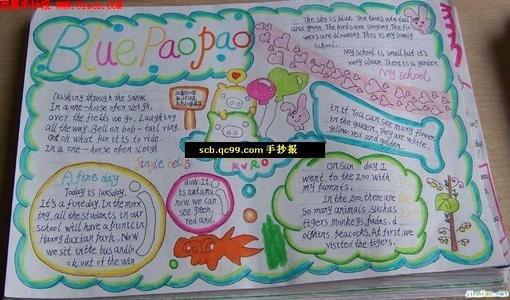 www.51scb.com
Blue Paopao
The sky is blue. The trees are tall
and green. The birds are singing. The fl
wers are blooming. This is my lovely
school.
My school is small but it's
very clean. There is a garden
My school
in it. You can see many flower
in the garden, They are white,
Yellow red and golden.
Dashing through the snow
In a one-horse open sleigh,
over the fields we go. Laughing
all the way. Bell on bob-tail ring,
what fun it is to ride.
In a one-horse open sleigh
Jingle bells
scb.qc99.com 手抄报
KVRO
A fine day
Today is Tuesday.
It's a fine day. In the morn
ing, all the students in our
school will have a picnic in
Huang daxian park. Now
we sit in the bus and lo
ok out of the win
now. It
is autumn
now. we can
see green,
red and
On Sun-day I
went to the zoo with
my parents.
In the zoo, there are
So many animals, Such as
tigers, Monkeys, Pandas, d
olphins, Peacocks. At first, we
visited the tigers.